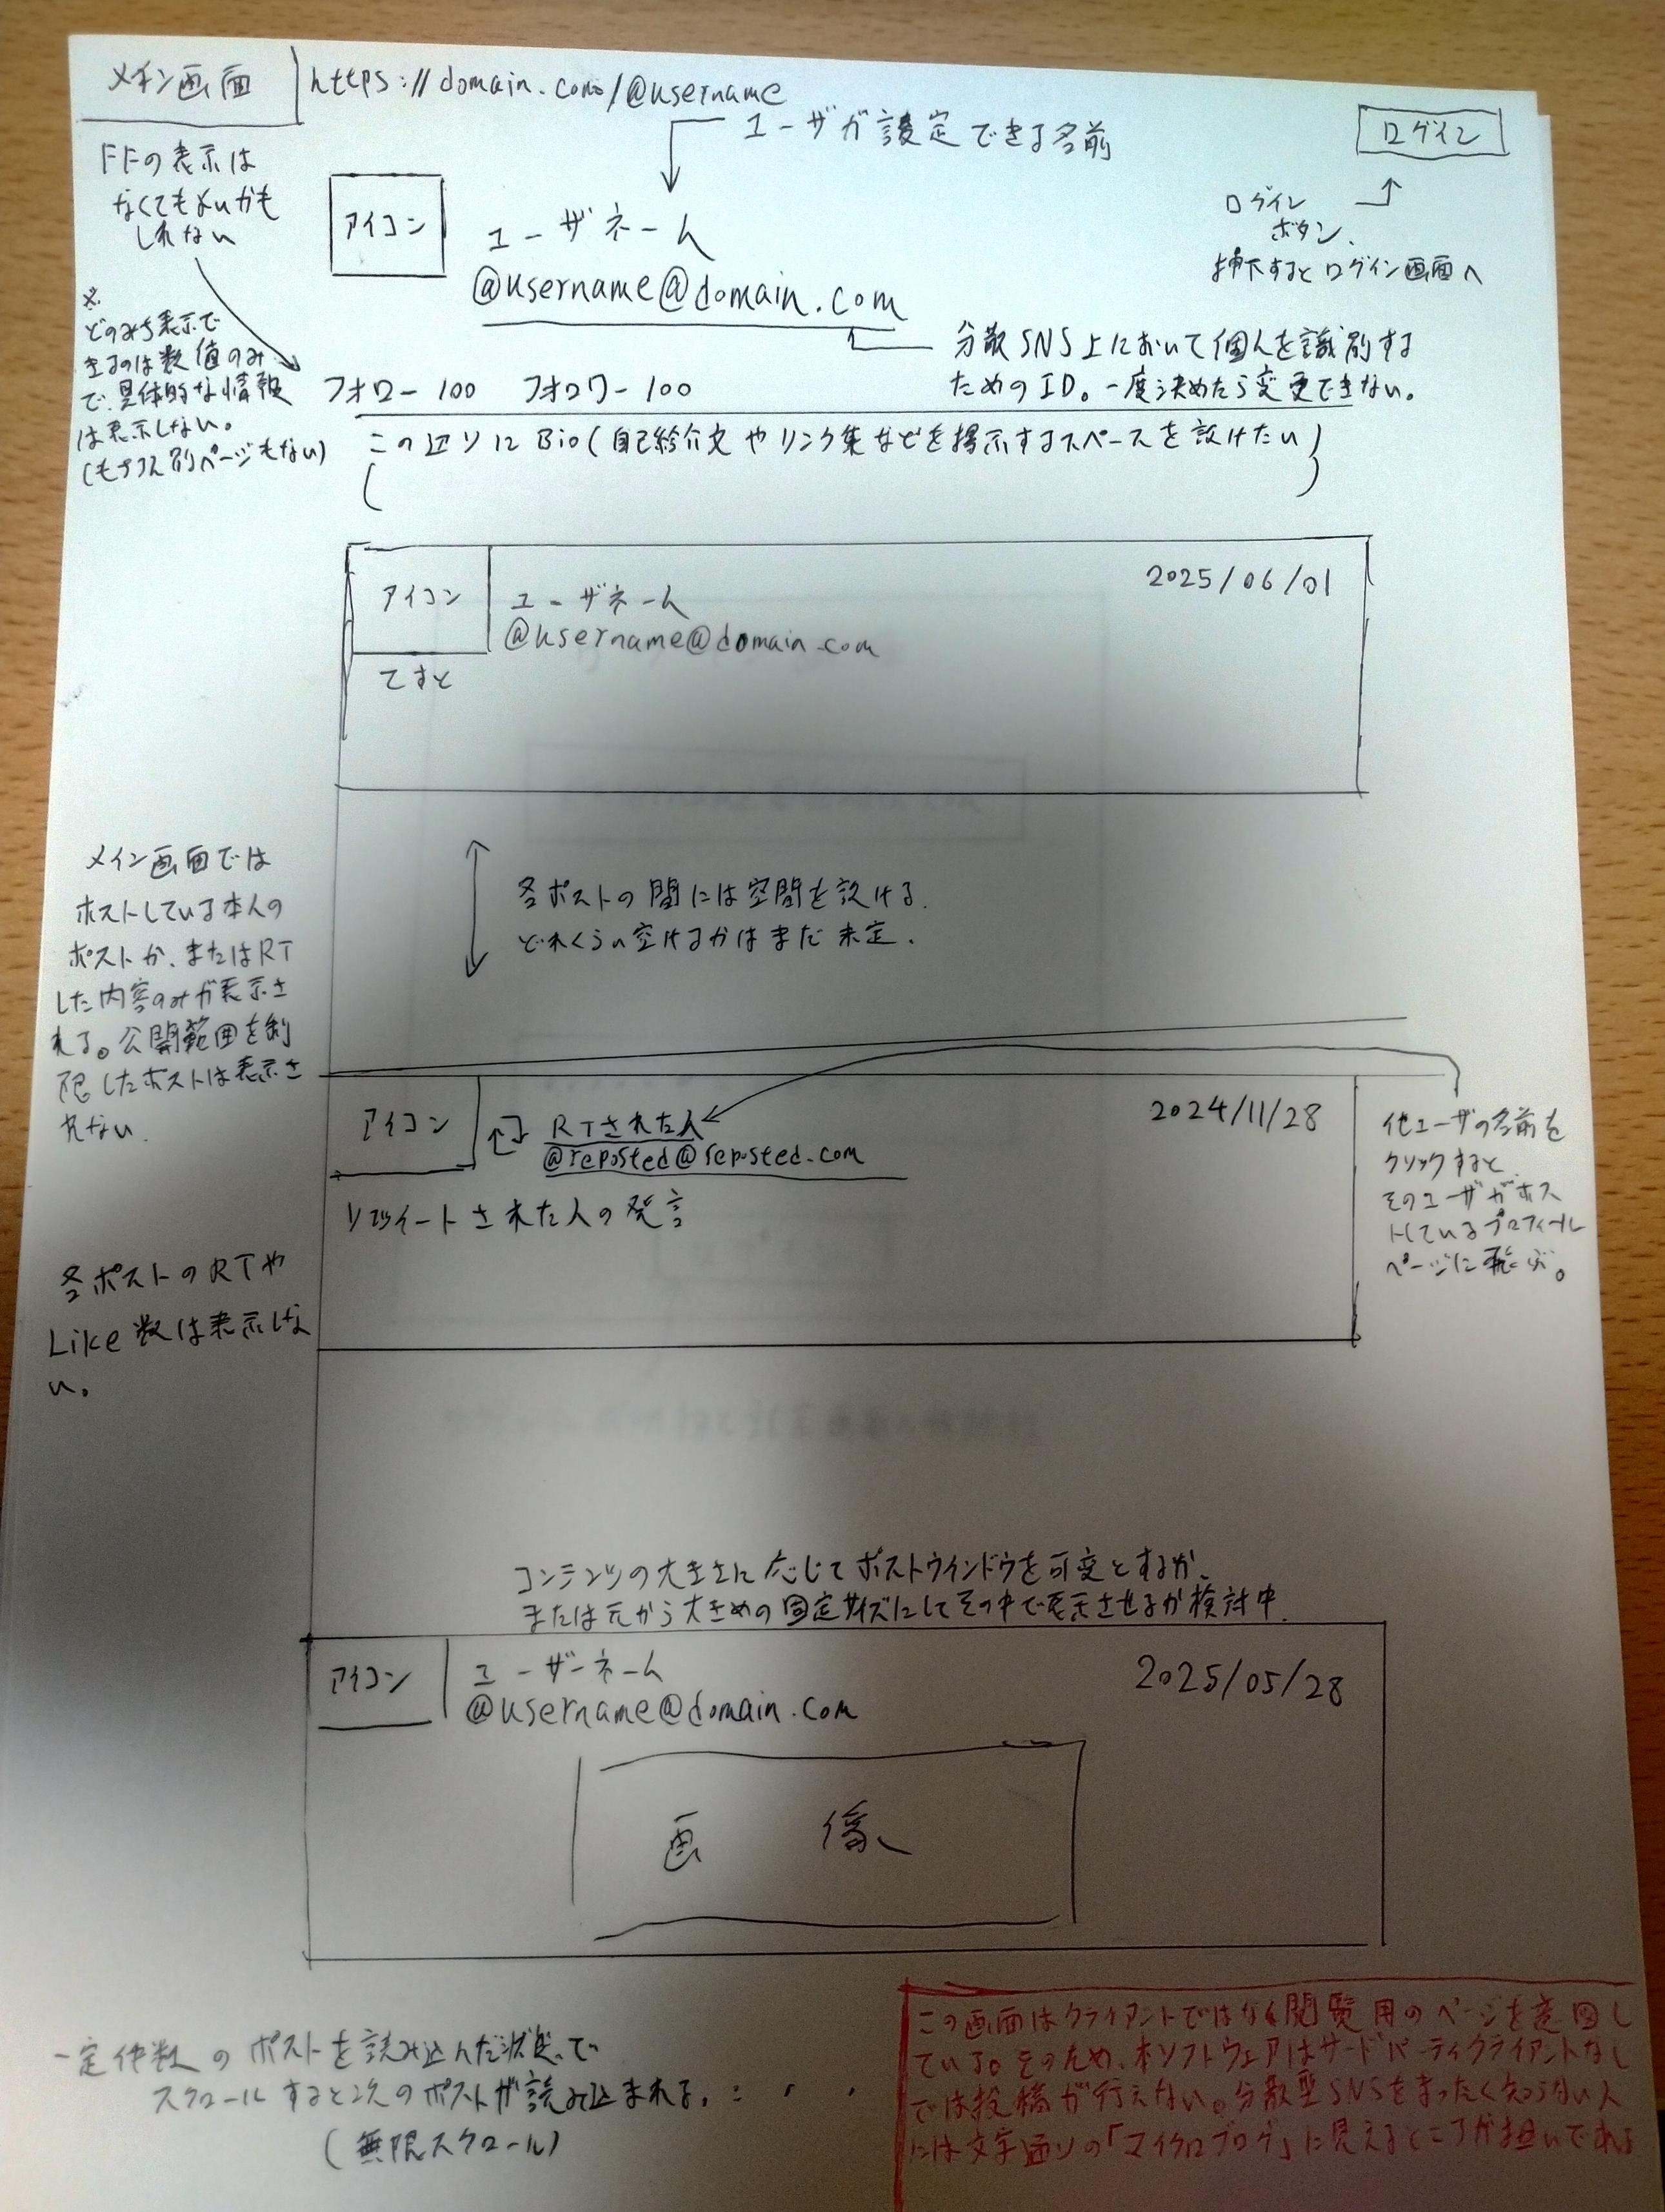 メイン画面
https://domain.com/@username
ユーザが設定できる名前
ログイン
ログイン
ボタン、
押下するとログイン画面へ
FFの表示は
なくてもよいかも
しれない
アイコン
ユーザネーム
@username@domain.com
分散SNS上において個人を識別する
ためのID。一度決めたら変更できない。
※
どのみち表示で
きるのは数値のみ
で、具体的な情報
は表示しない。
(もちろん別ページもない)
フォロー 100 フォロワー 100
この辺りにBio(自己紹介文やリンク集などを掲示するスペースを設けたい)
アイコン
ユーザネーム
@username@domain.com
2025/06/01
てすと
メイン画面では
ホストしている本人の
ポストか、またはRT
した内容のみが表示さ
れる。公開範囲を制
限したポストは表示さ
れない.
各ポストの間には空間を設ける.
どれくらい空けるかはまだ未定.
アイコン
RTされた人
@reposted@reposted.com
2024/11/28
リツイートされた人の発言
他ユーザの名前を
クリックすると
そのユーザがホス
トしているプロフィール
ページに飛ぶ。
各ポストのRTや
Like数は表示しな
い。
コンテンツの大きさに応じてポストウインドウを可変とするか、
または元から大きめの固定サイズにしてその中で表示させるか検討中.
アイコン
ユーザーネーム
@username@domain.com
2025/05/28
画像
一定件数のポストを読み込んだ状態で
スクロールすると次のポストが読み込まれる.
(無限スクロール)
この画面はクライアントではなく閲覧用のページを意図し
ている。そのため、本ソフトウェアはサードパーティクライアントなし
では投稿が行えない。分散型SNSをまったく知らない人
には文字通りの「マイクロブログ」に見えるところが狙いである